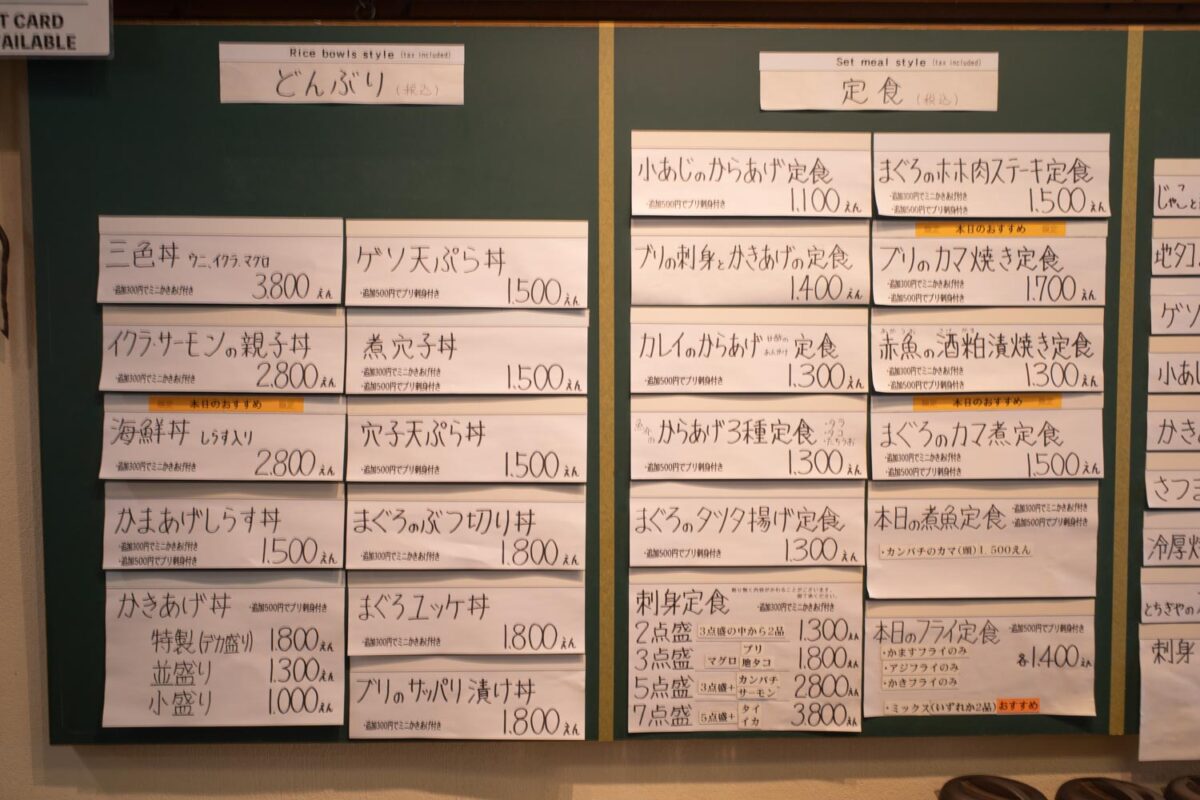 T CARD
AILABLE
Rice bowls style (tax included)
どんぶり (税込)
三色丼 ウニ、イクラ、マグロ
・追加300円でミニかきあげ付き
3.800えん
イクラ・サーモンの親子丼
・追加300円でミニかきあげ付き
2.800えん
限定 本日のおすすめ 限定
海鮮丼 しらす入り
・追加300円でミニかきあげ付き
2.800えん
かまあげしらす丼
・追加300円でミニかきあげ付き
・追加500円でブリ刺身付き
1.500えん
かきあげ丼 ・追加500円でブリ刺身付き
特製(デカ盛り) 1.800えん
並盛り 1.300えん
小盛り 1.000えん
ゲソ天ぷら丼
・追加500円でブリ刺身付き
1.500えん
煮穴子丼
・追加300円でミニかきあげ付き
・追加500円でブリ刺身付き
1.500えん
穴子天ぷら丼
・追加500円でブリ刺身付き
1.500えん
まぐろのぶつ切り丼
・追加300円でミニかきあげ付き
1.800えん
まぐろユッケ丼
・追加300円でミニかきあげ付き
1.800えん
ブリのサッパリ漬け丼
・追加300円でミニかきあげ付き
1.800えん
Set meal style (tax included)
定食 (税込)
小あじのからあげ定食
・追加500円でブリ刺身付き
1.100えん
ブリの刺身とかきあげの定食
1.400えん
カレイのからあげ 定食
・追加500円でブリ刺身付き
1.300えん
からあげ3種定食
・追加500円でブリ刺身付き
1.300えん
まぐろのタツタ揚げ定食
・追加500円でブリ刺身付き
1.300えん
刺身定食
・追加300円でミニかきあげ付き
2点盛 3点盛の中から2品 1.300えん
3点盛 マグロ ブリ 地タコ 1.800えん
5点盛 3点盛+ カンパチ サーモン 2.800えん
7点盛 5点盛+ タイ イカ 3.800えん
まぐろのホホ肉ステーキ定食
・追加300円でミニかきあげ付き
・追加500円でブリ刺身付き
1.500えん
限定 本日のおすすめ 限定
ブリのカマ焼き定食
・追加300円でミニかきあげ付き
・追加500円でブリ刺身付き
1.700えん
赤魚の酒粕漬焼き定食
・追加300円でミニかきあげ付き
・追加500円でブリ刺身付き
1.300えん
限定 本日のおすすめ 限定
まぐろのカマ煮定食
・追加300円でミニかきあげ付き
・追加500円でブリ刺身付き
1.500えん
本日の煮魚定食
・追加300円でミニかきあげ付き
・追加500円でブリ刺身付き
・カンパチのカマ(頭)1.500えん
本日のフライ定食 ・追加500円でブリ刺身付き
・かますフライのみ
・アジフライのみ
・かきフライのみ
各1.400えん
・ミックス(いずれか2品) おすすめ
じゃこと
地タコ
ゲソ
小あじ
かき
さつま
冷厚焼
とちぎやの
刺身